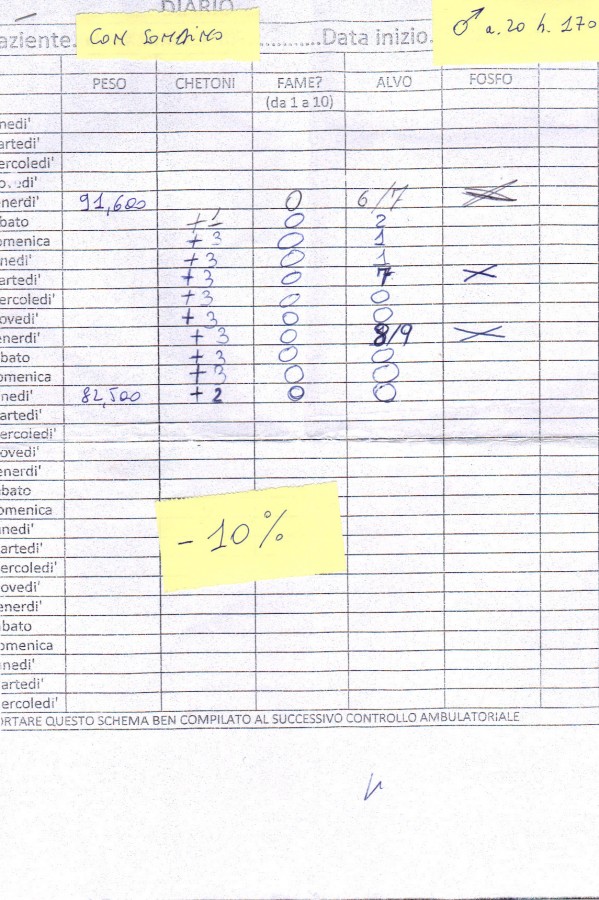 DIARIO
aziente. CON SONDINO ............Data inizio. ♂ a. 20 h. 170
PESO CHETONI FAME? ALVO FOSFO
(da 1 a 10)
nedi'
artedi'
ercoledi'
ovedi'
nerdi' 91,600 0 6/7 X
bato +1 0 2
omenica +3 0 1
nedi' +3 0 1
artedi' +3 0 7 X
ercoledi' +3 0 0
ovedi' +3 0 0
enerdi' +3 0 8/9 X
bato +3 0 0
omenica +3 0 0
nedi' 82,500 +2 0 0
artedi'
ercoledi'
ovedi'
enerdi'
bato
omenica
nedi'
artedi'
ercoledi'
ovedi'
enerdi'
bato
omenica
nedi'
artedi'
ercoledi'
- 10%
ORTARE QUESTO SCHEMA BEN COMPILATO AL SUCCESSIVO CONTROLLO AMBULATORIALE